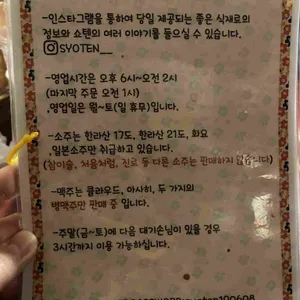 -인스타그램을 통하여 당일 제공되는 좋은 식재료의
정보와 쇼텐의 여러 이야기를 들으실 수 있습니다.
SYOTEN__
-영업시간은 오후 6시~오전 2시
(마지막 주문 오전 1시)
영업일은 월~토(일 휴무)입니다.
-소주는 한라산 17도, 한라산 21도, 화요
일본소주만 취급하고 있습니다.
(참이슬, 처음처럼, 진로 등 다른 소주는 판매하지 않습니다)
-맥주는 클라우드, 아사히, 두 가지의
병맥주만 판매 중 입니다.
-주말(금~토)에 다음 대기손님이 있을 경우
3시간까지 이용 가능하십니다.